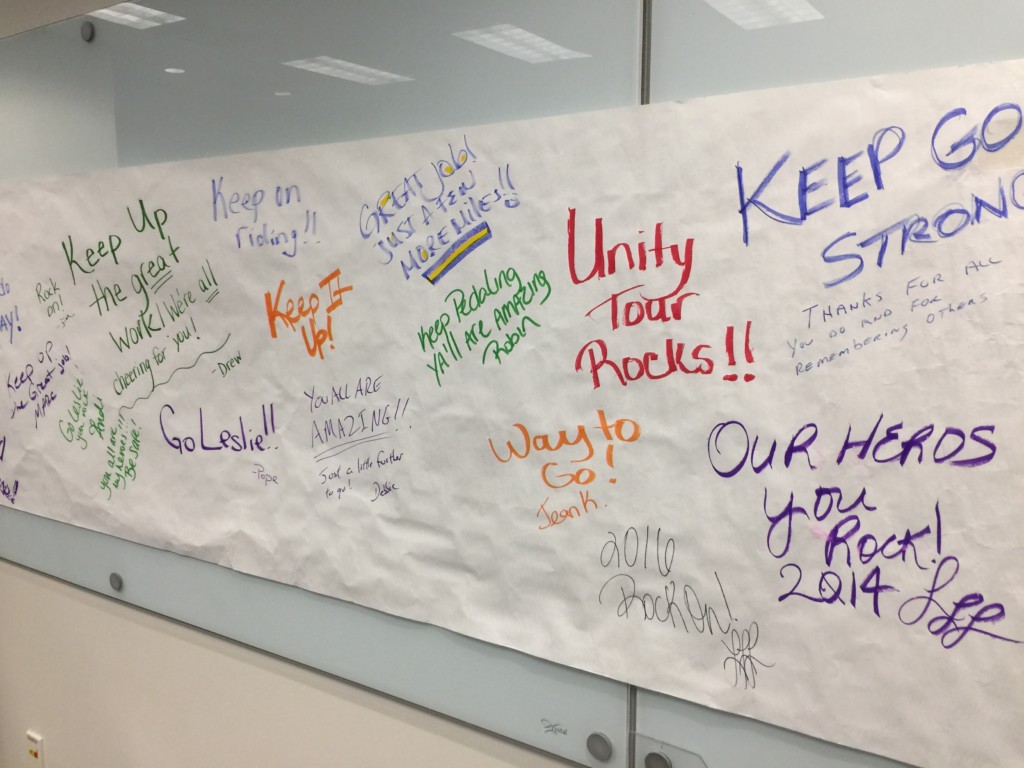 AY!
Rock
on!
Keep Up
the great
work! We're all
cheering for you!
-Drew
Keep up
the Great
Go Leslie
you all are
my heros!!!
Be safe!
Keep on
riding!!
Keep It
Up!
Go Leslie!!
-Pope
GREAT JOB!
JUST A FEW
MORE MILES!!
You ALL ARE
AMAZING!!
Just a little further
to go!
Debbie
Keep Pedaling
YA'll ARE AMAZING
Robin
Unity
Tour
Rocks!!
Way to
Go!
Jean K.
2016
Rock On!
KEEP GO
STRONG
THANKS FOR ALL
YOU DO AND FOR
REMEMBERING OTHERS
OUR HEROS
you
Rock!
2014